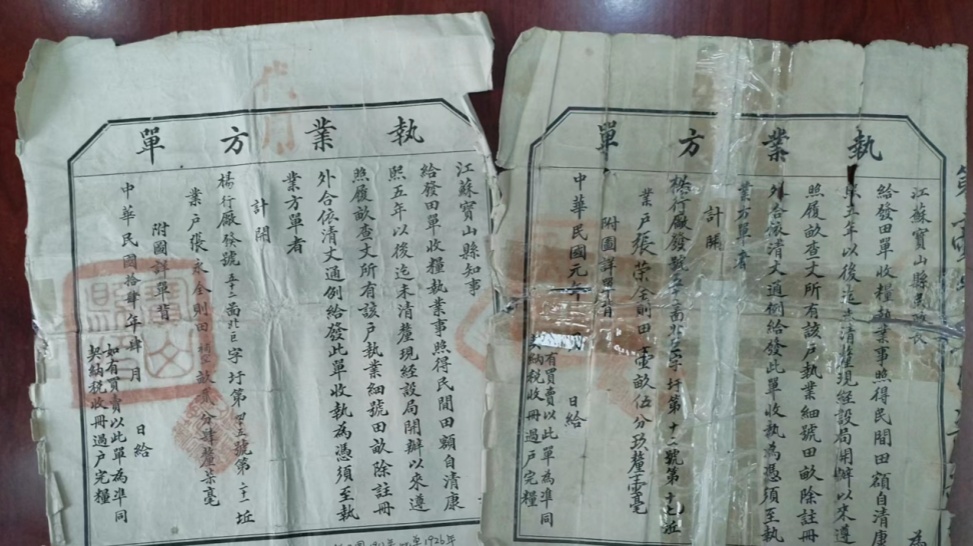 執業方單
江蘇寶山縣知事
給發田單收糧執業事照得民間田額自清康
熙五年以後迄未清釐現經設局開辦以來遵
照履畝查丈所有該戶執業細號田畝除註冊
外合依清丈通例給發此單收執為憑須至執
業方單者
計開
楊行廠發號 五十二 圖北巨字圩第 號第 坵
業戶張永全則田 畝貳分肆釐柒毫
附圖詳單背
中華民國拾肆年肆月 日給
如有買賣以此單為準同
契納稅收冊過戶完糧
執業方單
為
江蘇寶山縣民政長
給發田單收糧執業事照得民間田額自清康
熙五年以後迄未清釐現經設局開辦以來遵
照履畝查丈所有該戶執業細號田畝除註冊
外合依清丈通例給發此單收執為憑須至執
業方單者
計開
楊行廠發號 圖北 字圩第十二號第十七坵
業戶張榮 則田壹畝伍分玖釐壹毫
附圖詳單背
中華民國元年 月 日給
有買賣以此單為準同
契納稅收冊過戶完糧
至1926年